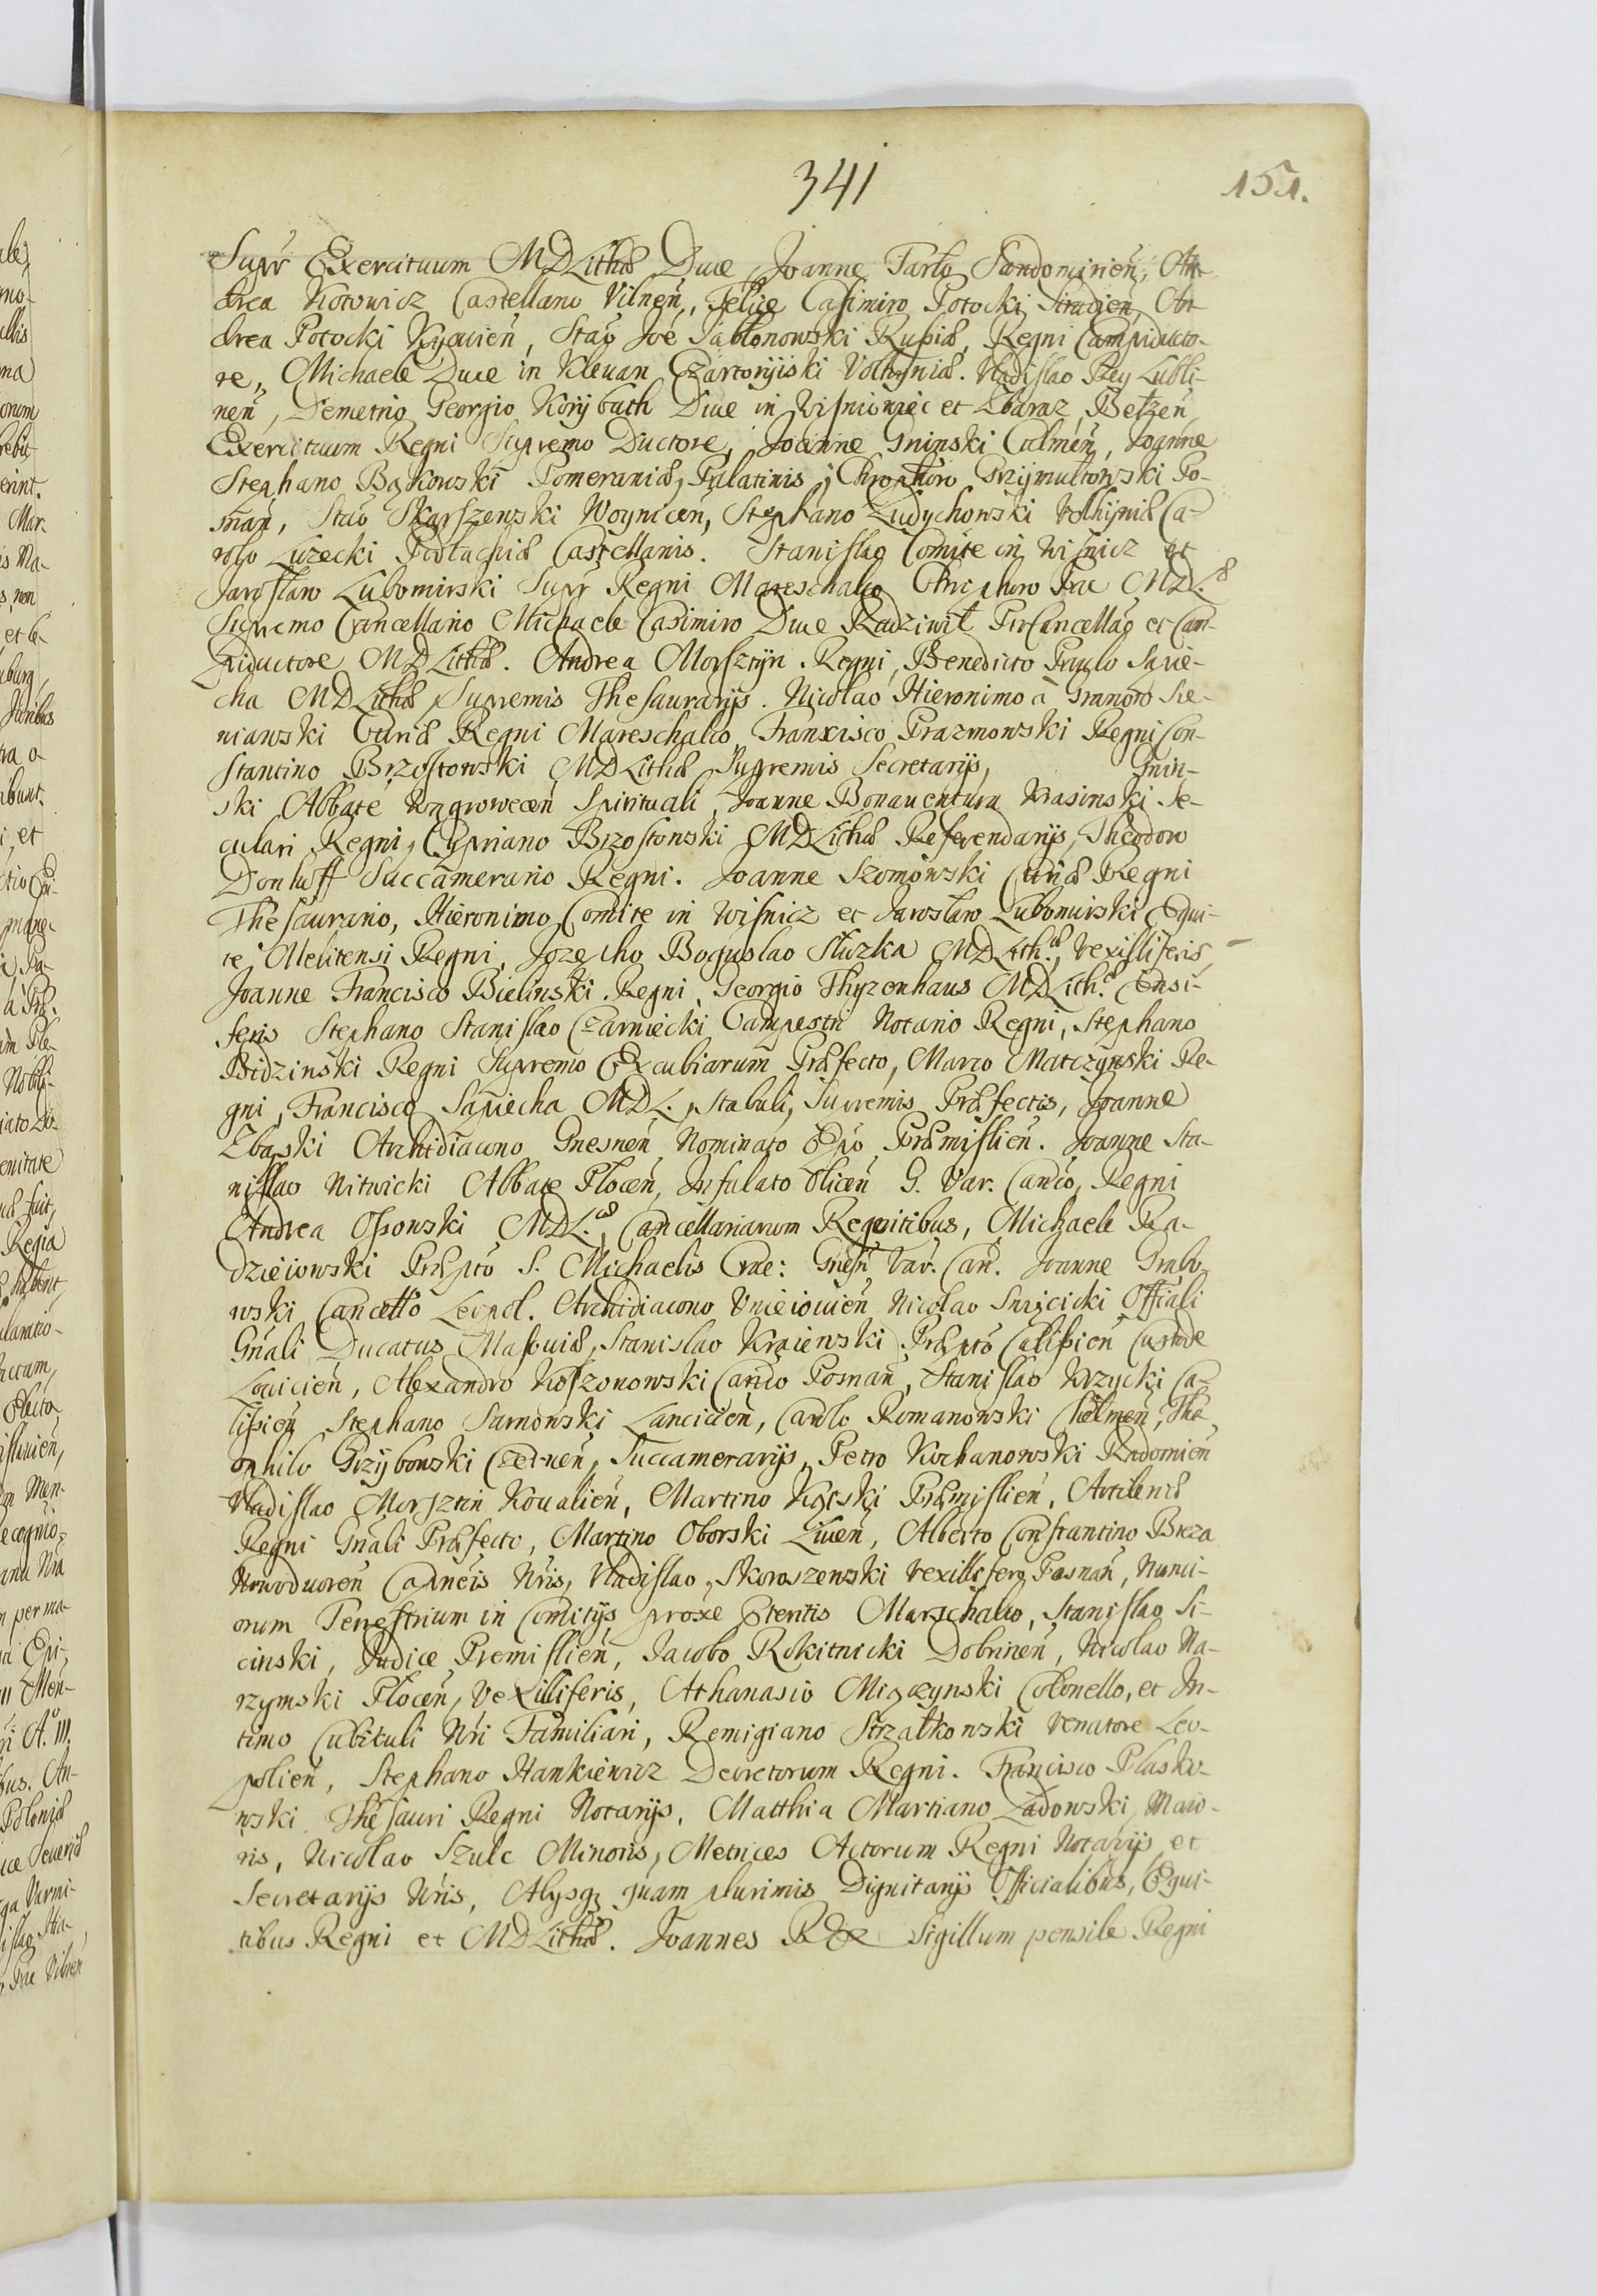 341
151.
Supr Exercituum MDLithæ Duce, Joanne Tarło Sandomirien̄, An-
drea Kotowicz Castellano Vilnen̄, Felice Casimiro Potocki Siradien̄, An-
drea Potocki Kyovien̄, Stao Joe Jabłonowski Rußiæ, Regni Campiducto-
re, Michaele Duce in Klevan Czartoryiski Volhyniæ. Vladislao Rey Lubli-
nen̄, Demetrio Georgio Korybuth Duce in Wisniowiec et Zbaraz, Bełzen̄
Exercituum Regni Supremo Ductore, Joanne Gninski Culmen̄, Joanne
Stephano Bąkowski Pomeraniæ, Palatinis; Chrophoro Grzymułtowski Po-
snan̄, Stao Skarszewski Woynicen̄, Stephano Ludychowski Volhyniæ Ca-
rolo Luzecki Podlachiæ Castellanis. Stanislao Comite in Wisnicz et
Jarosław Lubomirski Supr Regni Mareschalco Chriphoro Pac MDL.æ
Supremo Cancellario Michaele Casimiro Duce Radziwił ProCancellao et Cam-
piductore MDLithæ. Andrea Morsztyn Regni, Benedicto Paulo Sapie-
cha MDLithæ Supremis Thesaurarijs. Nicolao Hieronimo a Granow Sie-
niawski Curiæ Regni Mareschalco, Francisco Prazmowski Regni Con-
stantino Brzostowski MDLithæ Supremis Secretarijs, Gnin-
ski Abbate Wągrowecen̄ Spirituali, Joanne Bonaventura Krasinski Se-
culari Regni, Cypriano Brzostowski MDLithæ Referendarijs, Theodoro
Donhoff Succamerario Regni. Joanne Szomowski Curiæ Regni
Thesaurario, Hieronimo Comite in Wisnicz et Jarosław Lubomirski Equi-
te Melitensi Regni, Josepho Boguslao Słuzka MDLith.æ, Vexilliferis,
Joanne Francisco Bielinski Regni, Georgio Thyzenhaus MDLith.æ Ensi-
feris Stephano Stanislao Czarniecki Campestri Notario Regni, Stephano
Bidzinski Regni Supremo Excubiarum Præfecto, Marco Matczynski Re-
gni, Francisco Sapiecha MDL., Stabuli, Supremis Præfectis, Joanne
Zbąski Archidiacono Gnesnen̄ Nominato Epo Præmislien̄. Joanne Sta-
nislao Witwicki Abbate Plocen̄, Infulato Olicen̄ G. Var. Canco, Regni
Andrea Ossowski MDL.æ, Cancellariarum Regentibus, Michaele Ra-
dzieiowski Præpto S. Michaelis Crac: Gnesn̄ Var. Can̄. Joanne Grabo-
wski Cancello Leopol. Archidiacono Unieiovien̄ Nicolao Swięcicki Offiali
Gn̄ali Ducatus Masoviæ, Stanislao Kraiewski Præpto Calißien̄ Custode
Lovicien̄, Alexandro Koszonowski Can̄co Posnan̄, Stanislao Krzycki Ca-
lißien̄ Stephano Sarnowski Lancicien̄, Carolo Romanowski Chelmen̄, The-
ophilo Grzybowski Czernen̄, Succamerarijs, Petro Kochanowski Radomien̄
Vladislao Morsztin Kovalien̄, Martino Kątski Præmislien̄, Artileriæ
Regni Gn̄ali Præfecto, Martino Oborski Liven̄, Alberto Constantino Breza
Nowodworen̄ Capneis Nr̄is, Vladislao Skoraszewski Vexillifero Posnan̄, Nunci-
orum Terrestrium in Comitijs proxe Pteritis Marschalco, Stanislao Si-
cinski, Judice Premislien̄, Jacobo Rokitnicki Dobrinen̄, Nicolao Na-
rzymski Plocen̄, Vexilliferis, Athanasio Miączynski Colonello, et In-
timo Cubiculi Nr̄i Familiari, Remigiano Strzałkowski Venatore Leo-
polien̄, Stephano Hankiewicz Decretorum Regni. Francisco Plasko-
wski Thesauri Regni Notarijs, Matthia Martiano Ładowski, Maio-
ris, Nicolao Szulc Minoris, Metrices Actorum Regni Notarijs et
Secretarijs Nr̄is, Alysq; quam plurimis Dignitarijs Officialibus, Equi-
tibus Regni et MDLithæ. Joannes Rex Sigillum pensile Regni